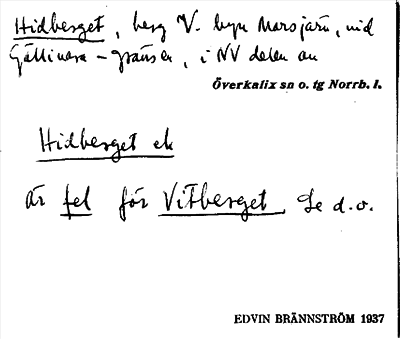 Hidberget, berg V. byn Marsjärv, vid
Gällivara-gränsen, i NV delen av
Överkalix sn o. tg Norrb. l.
Hidberget ek
är fel för Vitberget Se d.o.
EDVIN BRÄNNSTRÖM 1937